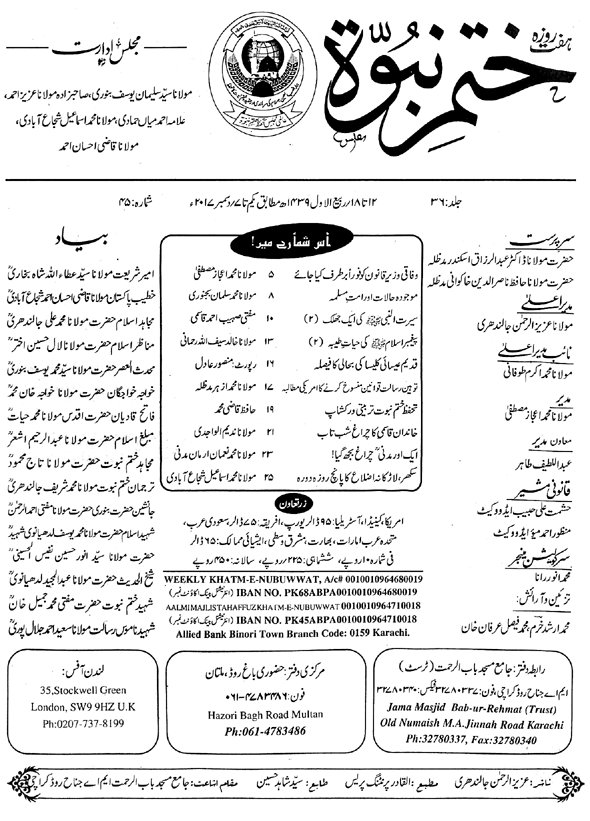 ہفت روزہ
ختم نبوۃ
مجلس ادارت
مولانا سیّد سلیمان یوسف بنوری، صاحبزادہ مولانا عزیز احمد،
علامہ احمد میاں حمادی، مولانا محمد اسماعیل شجاع آبادی،
مولانا قاضی احسان احمد
جلد:۳۶
۱۲ تا ۱۸/ربیع الاول ۱۴۳۹ھ مطابق یکم تا ۷/دسمبر ۲۰۱۷ء
شمارہ:۴۵
سرپرست
حضرت مولانا ڈاکٹر عبدالرزاق اسکندر مدظلہ
حضرت مولانا حافظ ناصر الدین خاکوانی مدظلہ
مدیر اعلیٰ
مولانا عزیز الرحمٰن جالندھری
نائب مدیر اعلیٰ
مولانا محمد اکرم طوفانی
مدیر
مولانا محمد اعجاز مصطفیٰ
معاون مدیر
عبداللطیف طاہر
قانونی مشیر
حشمت علی حبیب ایڈووکیٹ
منظور احمد میؤ ایڈووکیٹ
سرکولیشن منیجر
محمد انور رانا
تزئین و آرائش:
محمد ارشد خرم، محمد فیصل عرفان خان
اس شمارے میں!
وفاقی وزیر قانون کو فوراً برطرف کیا جائے ۵ مولانا محمد اعجاز مصطفیٰ
موجودہ حالات اور امتِ مسلمہ ۸ مولانا محمد سلمان بجنوری
سیرت النبی ﷺ کی ایک جھلک (۲) ۱۰ مفتی صہیب احمد قاسمی
پیغمبر اسلام ﷺ کی حیاتِ طیبہ (۲) ۱۳ مولانا خالد سیف اللہ رحمانی
قدیم عیسائی کلیسا کی بحالی کا فیصلہ ۱۶ رپورٹ: منصور عادل
توہین رسالت قوانین منسوخ کرنے کا امریکی مطالبہ ۱۷ مولانا محمد ازہر مدظلہ
تحفظ ختم نبوت تربیتی ورکشاپ ۱۹ حافظ قاضی محمد
خاندان قاسمی کا چراغ شب تاب ۲۱ مولانا ندیم الواجدی
ایک اور مدنی چراغ بجھ گیا! ۲۳ مولانا محمد نعمان ارمان مدنی
سکھر، لاڑکانہ اضلاع کا پانچ روزہ دورہ ۲۵ مولانا محمد اسماعیل شجاع آبادی
زرتعاون
امریکا، کینیڈا، آسٹریلیا: ۹۵ ڈالر یورپ، افریقہ: ۷۵ ڈالر سعودی عرب،
متحدہ عرب امارات، بھارت، مشرق وسطیٰ، ایشیائی ممالک: ۶۵ ڈالر
فی شمارہ ۱۰ روپے، ششماہی: ۲۲۵ روپے، سالانہ: ۴۵۰ روپے
WEEKLY KHATM-E-NUBUWWAT, A/c# 0010010964680019
IBAN NO. PK68ABPA0010010964680019 (انٹرنیشنل بینک اکاؤنٹ نمبر)
AALMI MAJLIS TAHAFFUZ KHATM-E-NUBUWWAT 0010010964710018
IBAN NO. PK45ABPA0010010964710018 (انٹرنیشنل بینک اکاؤنٹ نمبر)
Allied Bank Binori Town Branch Code: 0159 Karachi.
بیاد
امیر شریعت مولانا سیّد عطاء اللہ شاہ بخاریؒ
خطیب پاکستان مولانا قاضی احسان احمد شجاع آبادیؒ
مجاہد اسلام حضرت مولانا محمد علی جالندھریؒ
مناظر اسلام حضرت مولانا لال حسین اخترؒ
محدث العصر حضرت مولانا سیّد محمد یوسف بنوریؒ
خواجہ خواجگان حضرت مولانا خواجہ خان محمدؒ
فاتح قادیان حضرت اقدس مولانا محمد حیاتؒ
مبلغ اسلام حضرت مولانا عبدالرحیم اشعرؒ
مجاہد ختم نبوت حضرت مولانا تاج محمودؒ
ترجمان ختم نبوت حضرت مولانا محمد شریف جالندھریؒ
جانشین حضرت بنوری حضرت مولانا مفتی احمد الرحمٰنؒ
شہید اسلام حضرت مولانا محمد یوسف لدھیانوی شہیدؒ
حضرت مولانا سیّد انور حسین نفیس الحسینیؒ
شیخ الحدیث حضرت مولانا عبدالمجید لدھیانویؒ
شہید ختم نبوت حضرت مفتی محمد جمیل خانؒ
شہید ناموس رسالت مولانا سعید احمد جلال پوریؒ
رابطہ دفتر: جامع مسجد باب الرحمت (ٹرسٹ)
ایم اے جناح روڈ کراچی، فون: ۳۲۷۸۰۳۳۷ فیکس: ۳۲۷۸۰۳۴۰
Jama Masjid Bab-ur-Rehmat (Trust)
Old Numaish M.A.Jinnah Road Karachi
Ph:32780337, Fax:32780340
مرکزی دفتر: حضوری باغ روڈ، ملتان
فون: ۰۶۱-۴۷۸۳۴۸۶
Hazori Bagh Road Multan
Ph:061-4783486
لندن آفس:
35,Stockwell Green
London, SW9 9HZ U.K
Ph:0207-737-8199
ناشر: عزیز الرحمٰن جالندھری مطبع: القادر پرنٹنگ پریس طابع: سیّد شاہد حسین مقام اشاعت: جامع مسجد باب الرحمت ایم اے جناح روڈ کراچی